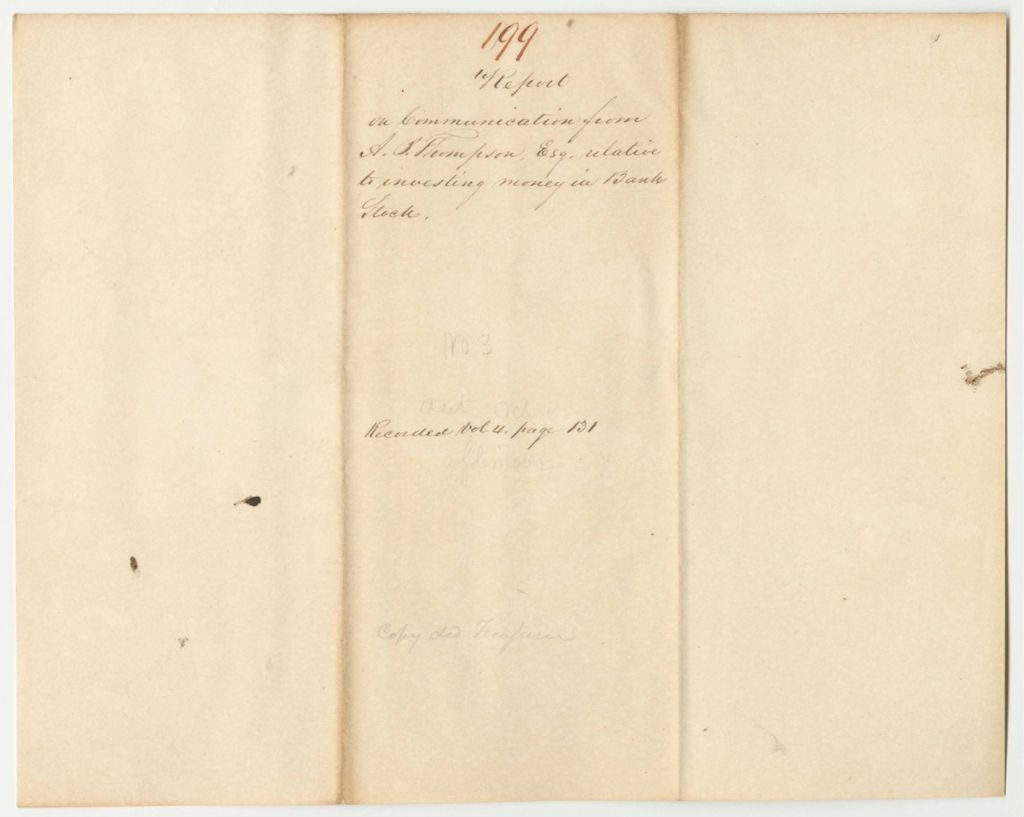 199
Report
on Communication from
A. P. Thompson, Esq. relative
to investing money in Bank
Stock.
No 3
Recorded Vol 4. page 131
Copy ded Treasurer